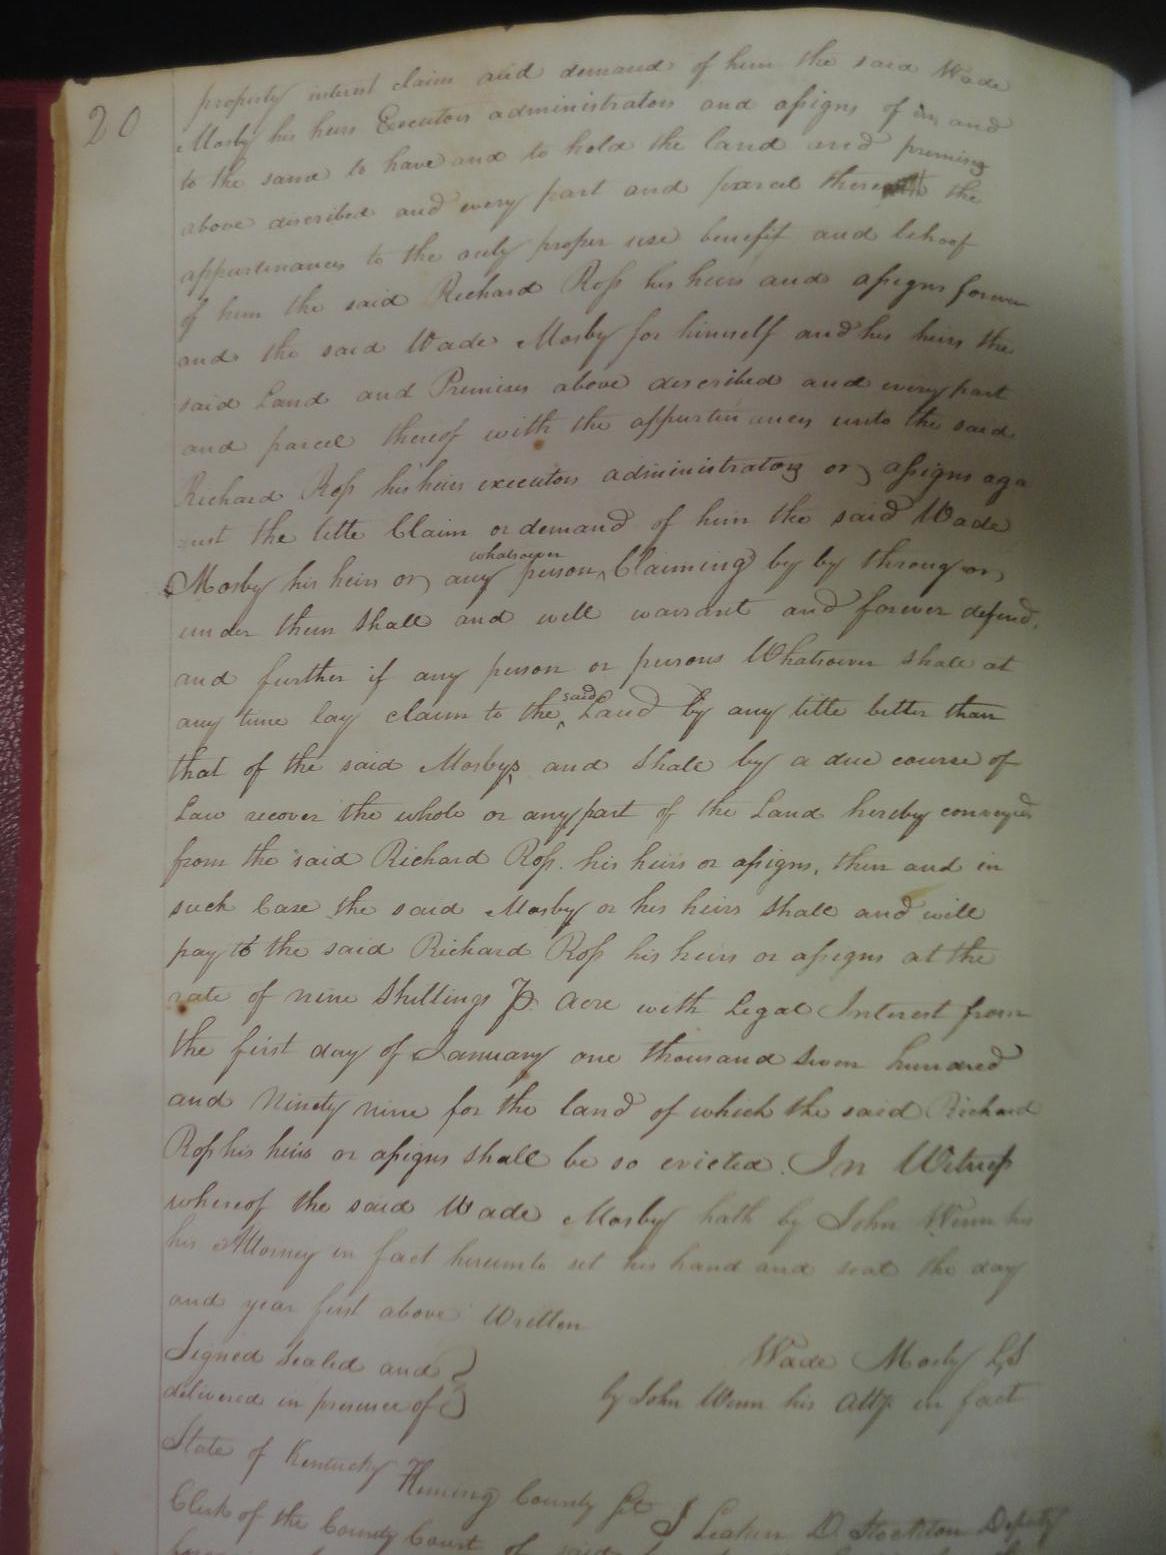 20
property interest claim and demand of him the said Wade
Mosby his heirs Executors administrators and assigns of in, and
to the same to have and to hold the land and premises
above discribed and every part and parcel the
appurtinances to the only proper use benefit and behoof
of him the said Richard Ross his heirs and assigns forever
and the said Wade Mosby for himself and his heirs the
said Land and Premises above described and every part
and parcel thereof with the appurtinances unto the said
Richard Ross his heirs executors administrators or assigns aga
inst the title Claim or demand of him the said Wade
Mosby his heirs or any person whatsoever Claiming by by throug or
under them shall and will warrant and forever defend.
and further if any person or persons Whatsoever shall at
any time lay claim to the said Land by any title better than
that of the said Mosbys and shall by a due course of
Law recover the whole or any part of the Land hereby conveyed
from the said Richard Ross. his heirs or assigns, then and in
such Case the said Mosby or his heirs shall and will
pay to the said Richard Ross his heirs or assigns at the
rate of nine Shillings ⅌ acre with Legal Interest from
the first day of January one thousand Seven hundred
and Ninety nine for the land of which the said Richard
Ross his heirs or assigns shall be so evicted. In Witness
whereof the said Wade Mosby hath by John Winn his
his Attorney in fact hereunto set his hand and seal the day
and year first above Written
Signed Sealed and
delivered in presence of
Wade Mosby LS
by John Winn his Atty. in fact
State of Kentucky Fleming County Sct I Leaken D. Stockton Deputy
Clerk of the County Court of said